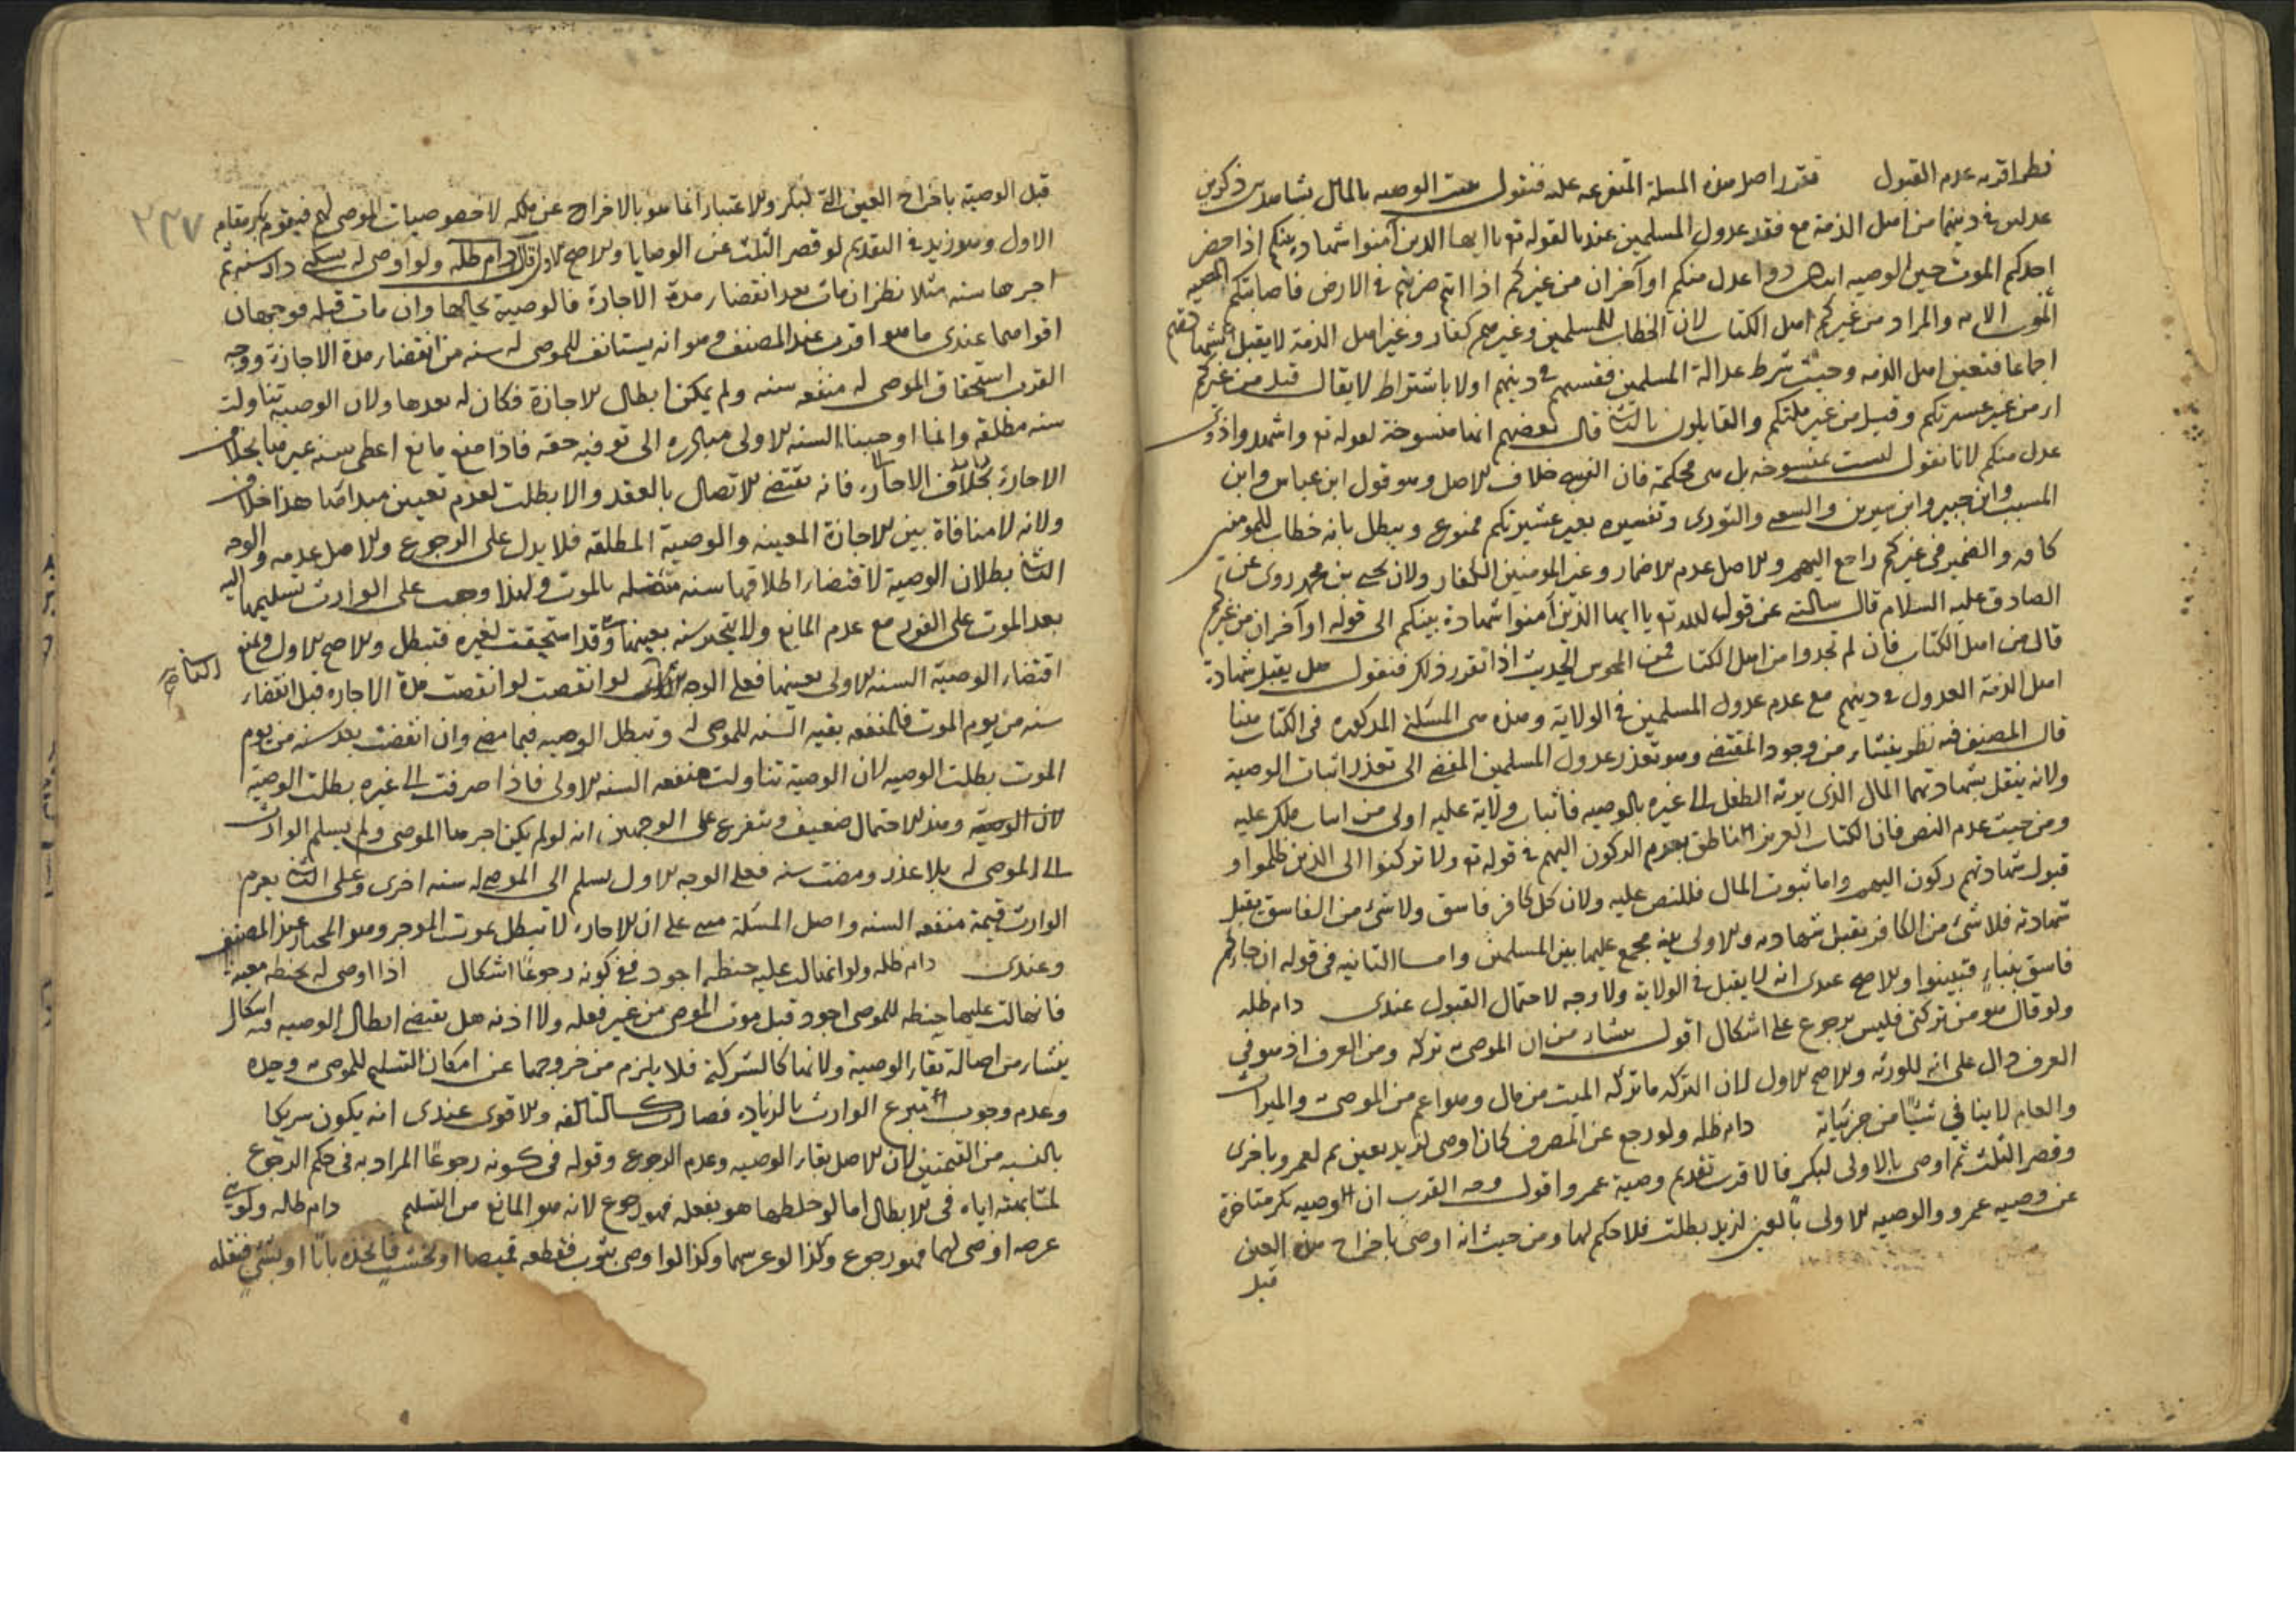 نظر اقربه عدم القبول فنقرر اصل هذه المسلة المتفرعه عليه فنقول يثبت الوصيه بالمال بشاهدين ذكرين
عدلين في دينهما من اهل الذمة مع فقد عدول المسلمين عندنا لقوله تع يا ايها الذين آمنوا شهادة بينكم اذا حضر
احدكم الموت حين الوصيه اثنان ذوا عدل منكم او آخران من غيركم اذا انتم ضربتم في الارض فاصابتكم مصيبه
الموت الايه والمراد من غيركم اهل الكتاب لان الخطاب للمسلمين وغيرهم كفار وغير اهل الذمة لا يقبل شهادتهم
اجماعا فتعين اهل الذمه وحيث شرط عدالة المسلمين ففسهم في دينهم اولا باشتراط لا يقال قيل من غيركم
اي من غير عشيرتكم وقيل من غير ملتكم والقايلون بالثاني قال بعضهم انها منسوخة لقوله تع واشهدوا ذوي
عدل منكم لانا نقول ليست بمنسوخه بل هي محكمة فان النسخ خلاف الاصل وهو قول ابن عباس وابن
المسيب وابن جبير وابن سيرين والشعبي والثوري وتفسيره بغير عشيرتكم ممنوع ويبطل بانه خطاب للمومنين
كافه والضمير في غيركم راجع اليهم والاصل عدم الاضمار وغير المومنين الكفار ولان يحيى بن محمد روى عن
الصادق عليه السلام قال سالته عن قول الله تع يا ايها الذين آمنوا شهادة بينكم الى قوله او آخران من غيركم
قال من اهل الكتاب فان لم تجدوا من اهل الكتاب فمن المجوس الحديث اذا تقرر ذلك فنقول هل يقبل شهادة
اهل الذمة العدول في دينهم مع عدم عدول المسلمين في الولاية وهذه هي المسلة المذكوره في الكتاب هنا
قال المصنف فيه نظر ينشاء من وجود المقتضي وهو تعذر عدول المسلمين المفضي الى تعذر اثبات الوصية
ولانه ينقل بشهادتهما المال الذي يرثه الطفل الى غيره بالوصيه فاثبات ولاية عليه اولى من اثبات ملك عليه
ومن حيث عدم النص فان الكتاب العزيز الناطق بعدم الركون اليهم في قوله تع ولا تركنوا الى الذين ظلموا و
قبول شهادتهم ركون اليهم واما ثبوت المال فللنص عليه ولان كل كافر فاسق ولا شيء من الفاسق يقبل
شهادته فلا شيء من الكافر يقبل شهادته والاولى مجمع عليها بين المسلمين واما الثانيه في قوله ان جاءكم
فاسق بنباء فتبينوا والاصح عندي انه لا يقبل في الولاية ولا وجه لاحتمال القبول عندي دام ظله
ولو قال هو من تركتي فليس برجوع على اشكال اقول ينشاء من ان الموصى به تركه ومن العرف اذ هو في
العرف دال على انه للورثه والاصح الاول لان التركه ما تركه الميت من مال وهو اعم من الموصى والميراث
والعام لا ينافي شيئا من جزئياته دام ظله ولو رجع عن المصرف كان اوصى لزيد بعين ثم لعمرو باخرى
وقصر الثلث ثم اوصى بالاولى لبكر فالاقرب تقديم وصية عمرو اقول وجه القرب ان الوصيه بكر متاخرة
عن وصيه عمرو والوصيه الاولى بالعين لزيد بطلت فلا حكم لها ومن حيث انه اوصى باخراج هذه العين
قبل
قبل الوصية باخراج العين التي لبكر والاعتبار انما هو بالاخراج عن ملكه لا خصوصيات الموصى لهم فيقوم بكر مقام
٢٣٧
الاول وهو زيد في التقديم لو قصر الثلث عن الوصايا والاصح الاول قال دام ظله ولو اوصى له بسكنى دار سنه ثم
اجرها سنه مثلا نظر ان مات بعد انقضاء مدة الاجارة فالوصية بحالها وان مات قبله فوجهان
اقواهما عندي ما هو اقرب عند المصنف وهو انه يستانف للموصى له سنه من انقضاء مدة الاجارة ووجه
القرب استحقاق الموصى له منفعه سنه ولم يمكن ابطال الاجارة فكان له بعدها ولان الوصية تناولت
سنه مطلقه وانما اوجبنا السنه الاولى مبادره الى توفيه حقه فاذا منع مانع اعطي سنه غيرها بخلاف
الاجارة بخلاف الاجاره فانه يقتضي الاتصال بالعقد والا بطلت لعدم تعيين مبداها هذا خلاف
ولانه لا منافاة بين الاجارة المعينه والوصية المطلقه فلا يدل على الرجوع والاصل عدمه والوجه
الثاني بطلان الوصية لاقتضاء اطلاقها سنه متصله بالموت ولهذا وجب على الوارث تسليمها اليه
بعد الموت على الفور مع عدم المانع ولا يتحد سنه بعينها وقد استحقت لغيره فتبطل والاصح الاول ونمنع
اقتضاء الوصية السنه الاولى بعينها فعلى الوجه الثاني لو انقضت مدة الاجاره قبل انقضاء
سنه من يوم الموت فالمنفعه بقيه السنه للموصى له وتبطل الوصيه فيما مضى وان انقضت بعد سنه من يوم
الموت بطلت الوصيه لان الوصية تناولت منفعه السنه الاولى فاذا صرفت الى غيره بطلت الوصية
لان الوصية وهذا الاحتمال ضعيف ويتفرع على الوجهين انه لو لم يكن اجرها الموصي ولم يسلم الوارث
الى الموصى له بلا عذر ومضت سنه فعلى الوجه الاول يسلم الى الموصى له سنه اخرى وعلى الثاني يغرم
الوارث قيمة منفعه السنه واصل المسلة مبني على ان الاجاره لا تبطل بموت الموجر وهو المختار عند المصنف
وعندي دام ظله ولو انهالت عليه حنطه اجود ففي كونه رجوعا اشكال اذا اوصى له بحنطه معينه
فانهالت عليها حنطه للموصي اجود قبل موت الموصي من غير فعله ولا اذنه هل يقتضي ابطال الوصيه فيه اشكال
ينشاء من اصالة بقاء الوصية ولانها كالشركة فلا يلزم من خروجها عن امكان التسليم للموصى به وحده
وعدم وجوب تبرع الوارث بالزياده فصارت كالتالفه والاقوى عندي انه يكون شريكا
بالنسبه من القيمتين لان الاصل بقاء الوصيه وعدم الرجوع وقوله في كونه رجوعا المراد به في حكم الرجوع
لمشابهته اياه في الابطال اما لو خلطها هو بفعله فهو رجوع لانه هو المانع من التسليم دام ظله ولو بنى
عرصه اوصى بها فهو رجوع وكذا لو غرسها وكذا لو اوصى بثوب فقطعه قميصا او بخشب فاتخذه بابا او بشيء فنقله